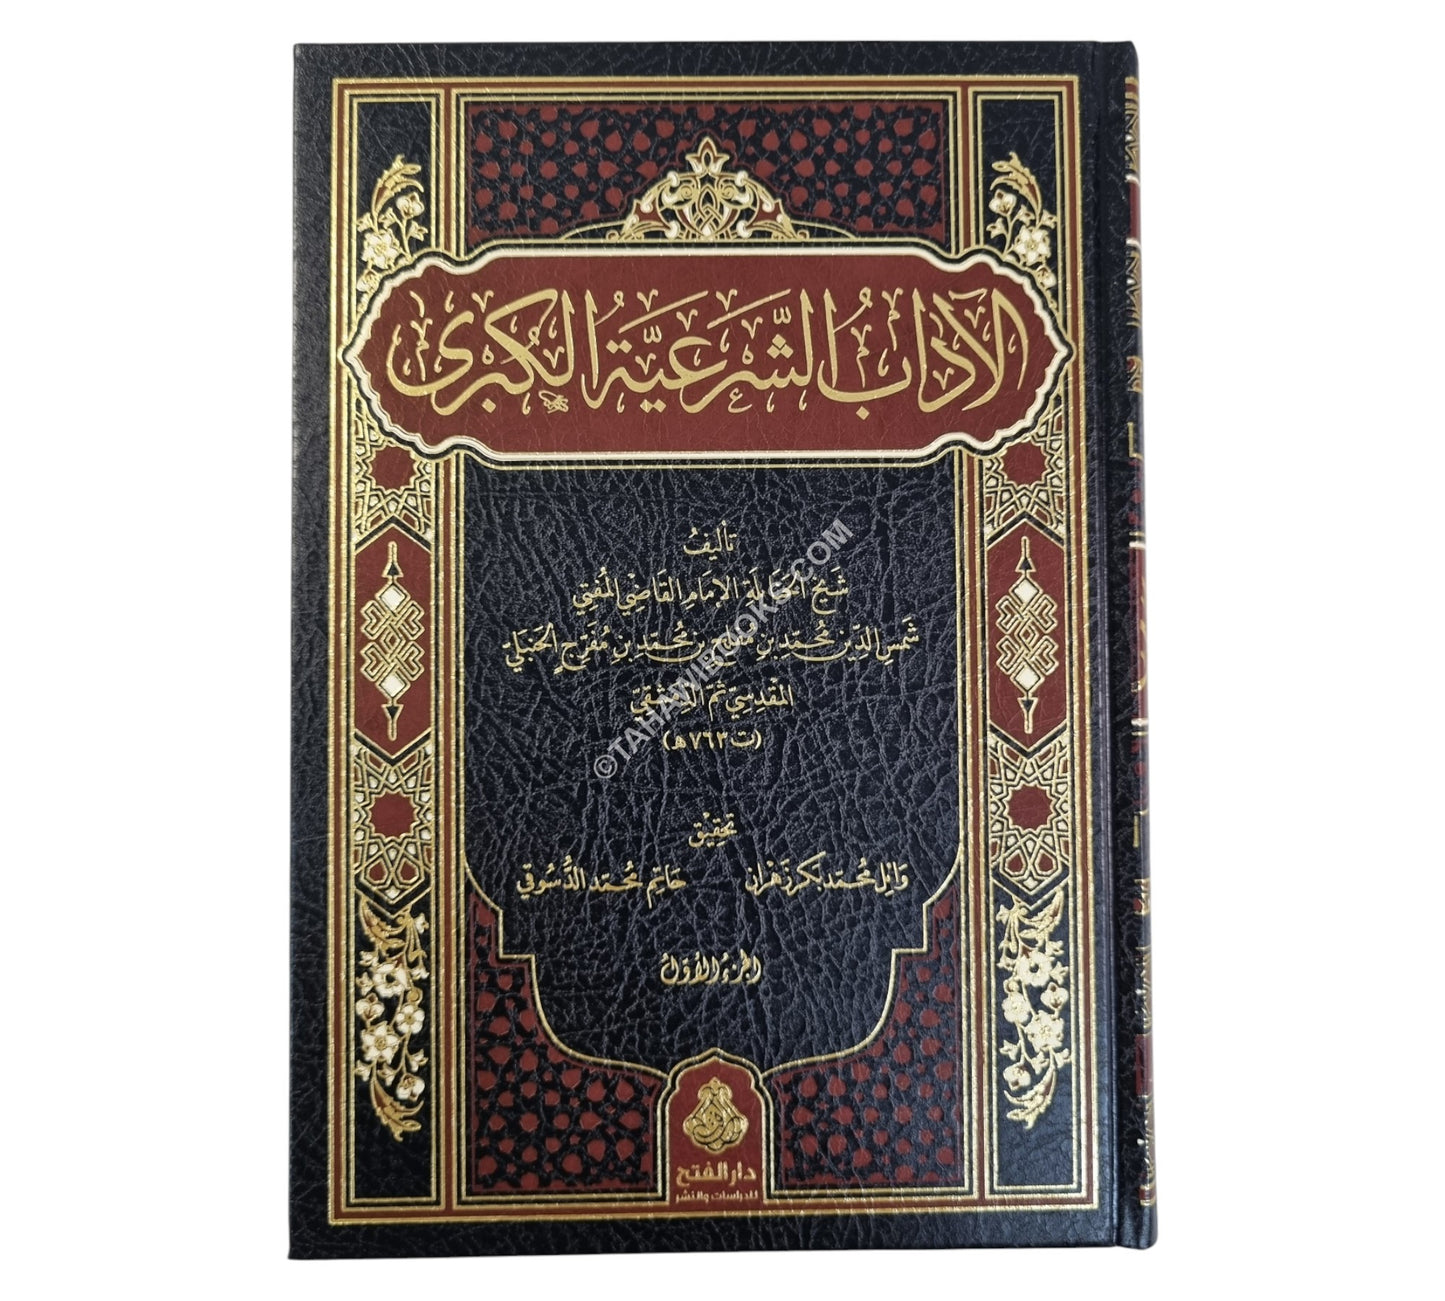 الآدابُ الشَّرعيَّةُ الكُبرى
تأليفُ
شَيخِ الحنَابِلَةِ الإمَامِ القَاضِي المُفتِي
شَمسِ الدِّينِ مُحمَّدِ بنِ مُفلِحِ بنِ مُحمَّدِ بنِ مُفَرِّجٍ الحَنبَليّ
المَقْدِسِيّ ثمّ الدِّمَشْقيّ
(ت ٧٦٣هـ)
تحقِيْق
وَائِل محُمَّد بَكر زَهْرَان حَاتِم محُمَّد الدُّسُوقي
الجزءُ الأوّلُ
دار الفتح
للدراسات والنشر
©TAHAWIBOOKS.COM